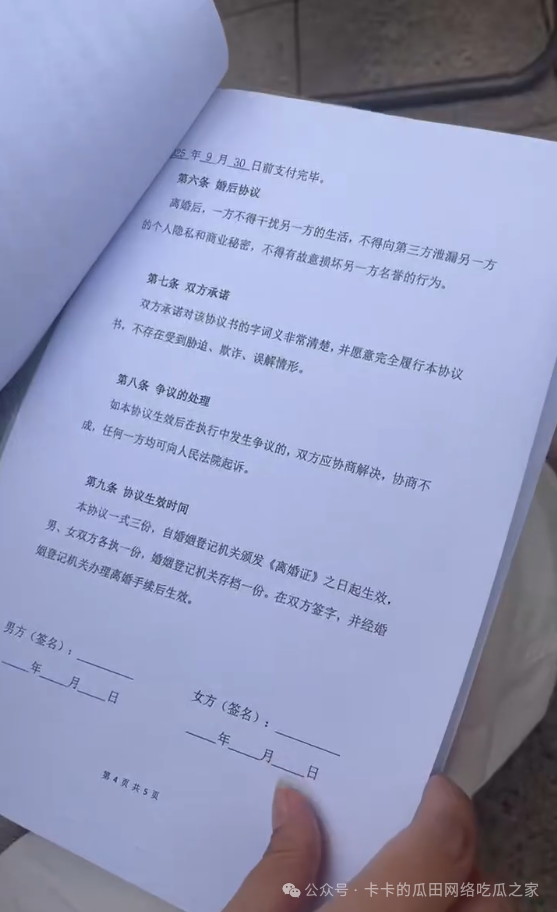 25 年 9 月 30 日前支付完毕。
第六条 婚后协议
离婚后，一方不得干扰另一方的生活，不得向第三方泄漏另一方
的个人隐私和商业秘密，不得有故意损坏另一方名誉的行为。
第七条 双方承诺
双方承诺对该协议书的字词义非常清楚，并愿意完全履行本协议
书，不存在受到胁迫、欺诈、误解情形。
第八条 争议的处理
如本协议生效后在执行中发生争议的，双方应协商解决，协商不
成，任何一方均可向人民法院起诉。
第九条 协议生效时间
本协议一式三份，自婚姻登记机关颁发《离婚证》之日起生效，
男、女双方各执一份，婚姻登记机关存档一份。在双方签字，并经婚
姻登记机关办理离婚手续后生效。
男方（签名）：________
____年____月____日
女方（签名）：________
____年____月____日
第 4 页 共 5 页
公众号 · 卡卡的瓜田网络吃瓜之家